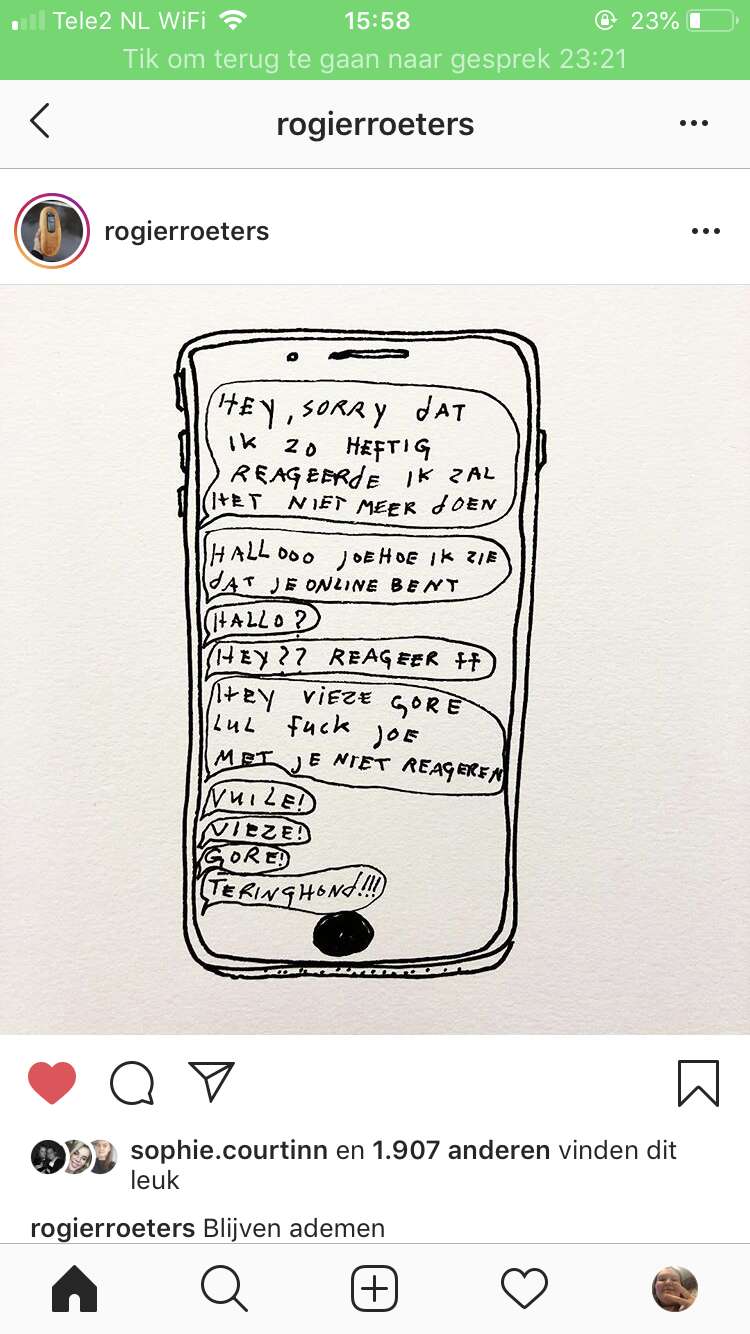 Tele2 NL WiFi 15:58 23%
Tik om terug te gaan naar gesprek 23:21
rogierroeters
rogierroeters
HEY, SORRY dAT
IK ZO HEFTIG
REAGEERdE IK ZAL
HET NIET MEER dOEN
HALLOOO JOEHOE IK ZIE
dAT JE ONLINE BENT
HALLO?
HEY?? REAGEER ff
HEY VIEZE GORE
LUL fuck JOE
MET JE NIET REAGEREN
VUILE!
VIEZE!
GORE!
TERINGHONd!!!
sophie.courtinn en 1.907 anderen vinden dit
leuk
rogierroeters Blijven ademen